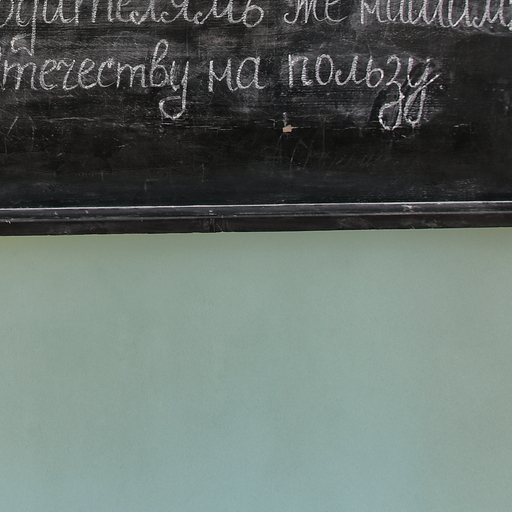 одителямъ же нашим
течеству на пользу.